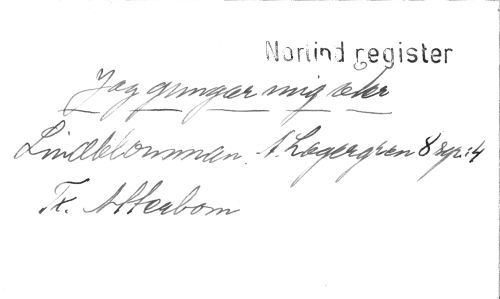 Norlind register
Jag gungar mig
Lindblomman. A. Lagergren 8 sgr: 4
Tx. Atterbom